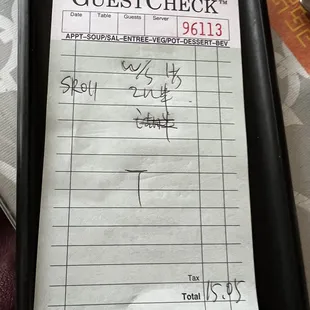 GUESTCHECK™
Date Table Guests Server
96113
APPT-SOUP/SAL-ENTREE-VEG/POT-DESSERT-BEV
W/S H/S
SROLL
T
Tax
Total 15.95